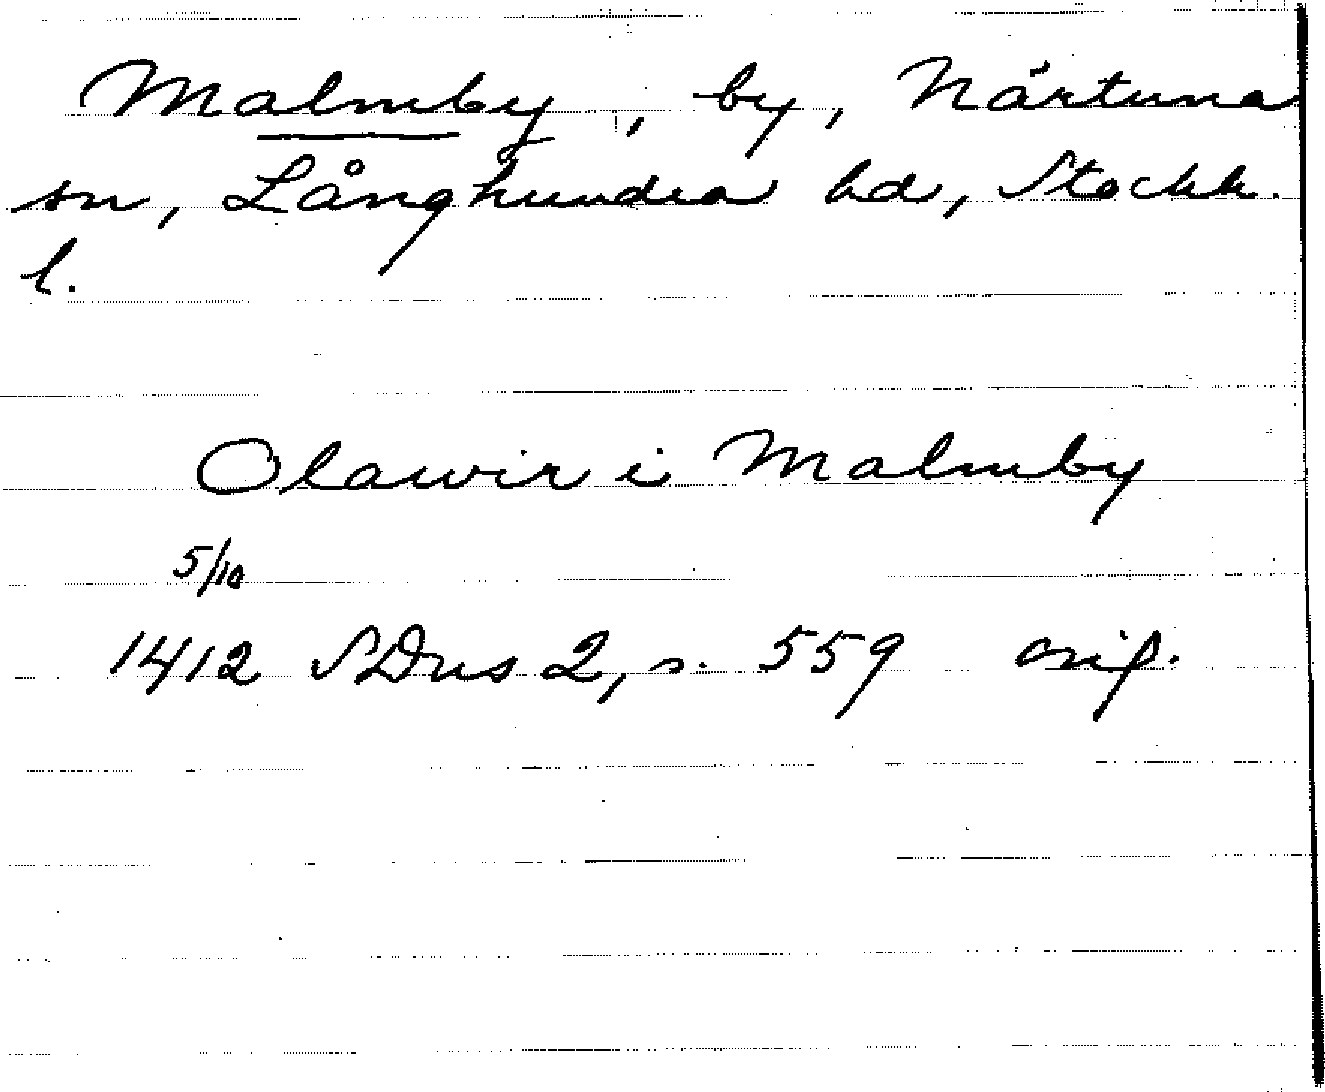 Malmby, by, Närtuna
sn, Långhundra hd, Stockh.
l.
Olawir i Malmby
5/10
1412 SDns 2, s. 559 orig.